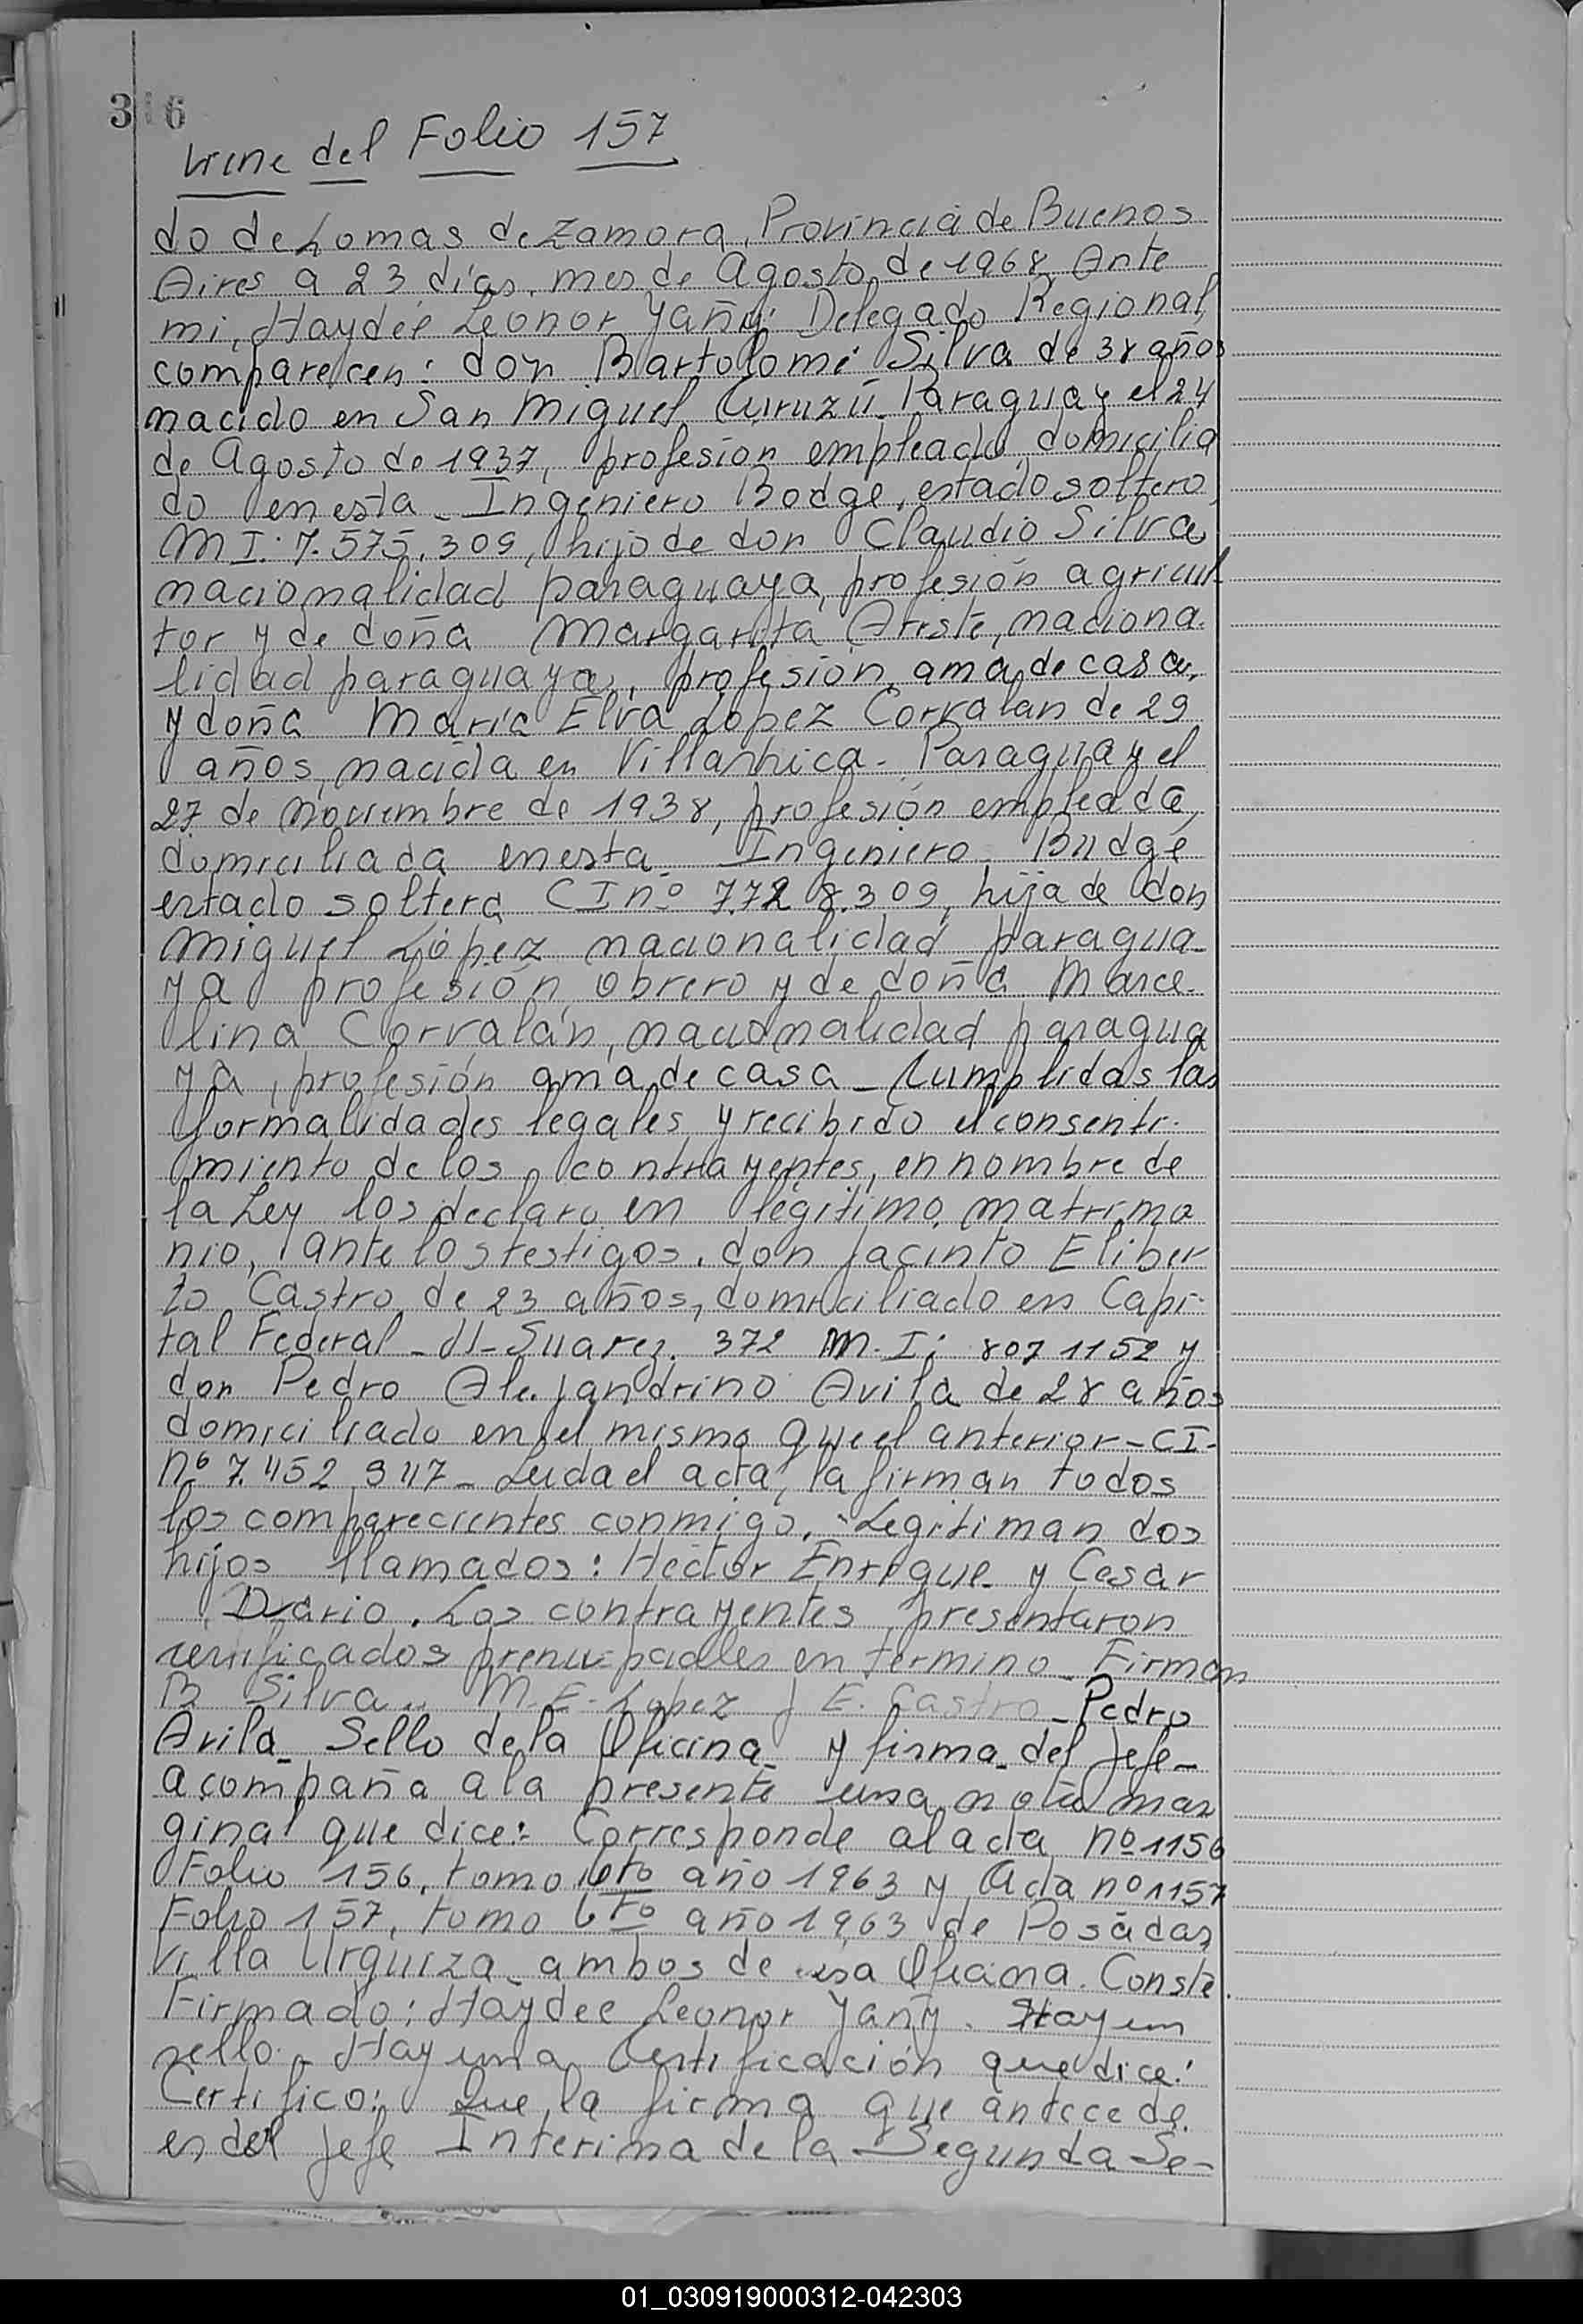 316
Viene del Folio 157
do de Lomas de Zamora, Provincia de Buenos
Aires a 23 días, mes de Agosto de 1968 Ante
mi, Haydée Leonor Yañy: Delegado Regional,
comparecen: don Bartolomé Silva de 38 años
nacido en San Miguel Curuzú - Paraguay el 24
de Agosto de 1937, profesión empleado, domicilia
do en esta - Ingeniero Bodge, estado soltero,
M I. 7.575.309, hijo de don Claudio Silva
nacionalidad paraguaya, profesión agricul
tor y de doña Margarita Arste, naciona-
lidad paraguaya, profesión, ama de casa,
y doña María Elva López Corvalan de 29
años, nacida en Villarrica - Paraguay el
27 de Noviembre de 1938, profesión empleada,
domiciliada en esta - Ingeniero Budge
estado soltera CI nº 7.728.309, hija de don
Miguel López nacionalidad paragua-
ya profesión obrero y de doña Marce-
lina Corvalán, nacionalidad paragua
ya, profesión ama de casa - Cumplidas las
formalidades legales y recibido el consenti-
miento de los contrayentes, en nombre de
la Ley los declaro en legítimo matrimo
nio, ante los testigos, don Jacinto Eliber
to Castro de 23 años, domiciliado en Capi-
tal Federal - Suarez. 372 M. I: 807 1152 y
don Pedro Alejandrino Avila de 28 años
domiciliado en el mismo que el anterior - CI -
nº 7.452.947 - Leida el acta, la firman todos
los comparecientes conmigo. Legitiman dos
hijos llamados: Hector Enrique y Cesar
Dario. Los contrayentes presentaron
certificados prenupciales en término - Firman
B Silva - M. E. Lopez J E. Castro - Pedro
Avila - Sello de la Oficina y firma del Jefe -
acompaña a la presente una nota mar
ginal que dice: Corresponde al acta nº 1156
Folio 156, tomo 6to año 1963 y Acta nº 1157
Folio 157, tomo 6to año 1963 de Posadas
Villa Urquiza - ambos de esa Oficina. Conste.
Firmado: Haydee Leonor Yañy. Hay un
sello - Hay una Certificación que dice:
Certifico: Que la firma que antecede
es del Jefe Interina de la Segunda Se-
01_030919000312-042303